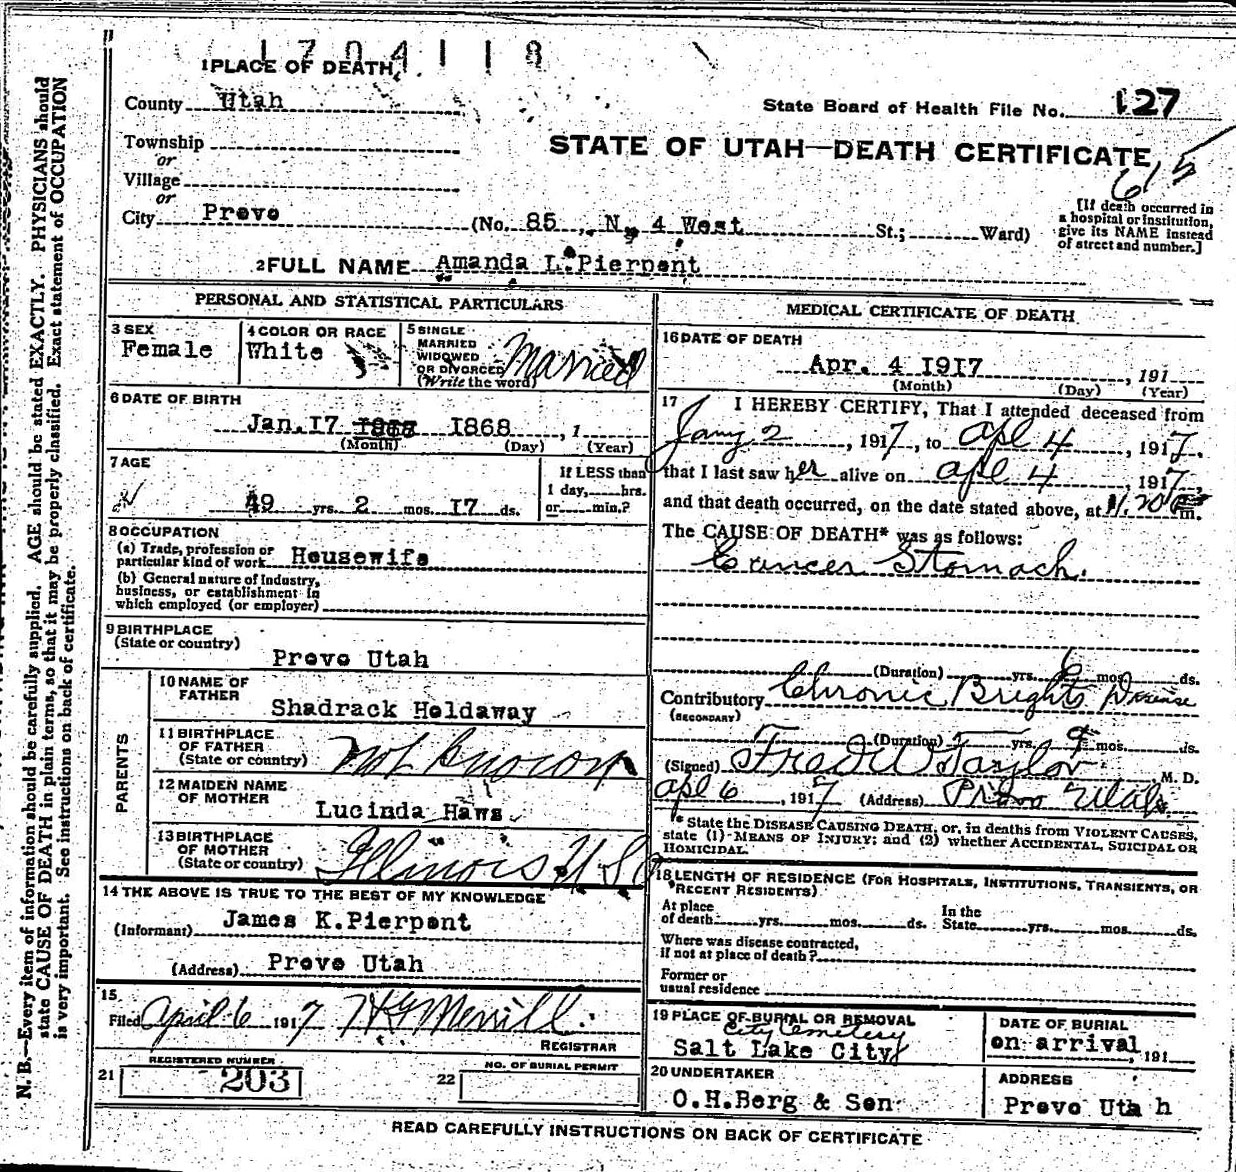 1704118
1 PLACE OF DEATH
County Utah
State Board of Health File No. 127
Township
or
Village
or
City Provo
STATE OF UTAH—DEATH CERTIFICATE
615
(No. 85 , N, 4 West St.; Ward)
[If death occurred in
a hospital or institution,
give its NAME instead
of street and number.]
2 FULL NAME Amanda L. Pierpont
PERSONAL AND STATISTICAL PARTICULARS
3 SEX
Female
4 COLOR OR RACE
White
5 SINGLE
MARRIED
WIDOWED
OR DIVORCED
(Write the word)
Married
6 DATE OF BIRTH
Jan. 17 1868 , 1
(Month) (Day) (Year)
7 AGE
49 yrs. 2 mos. 17 ds.
If LESS than
1 day, hrs.
or min.?
8 OCCUPATION
(a) Trade, profession or
particular kind of work Housewife
(b) General nature of industry,
business, or establishment in
which employed (or employer)
9 BIRTHPLACE
(State or country)
Provo Utah
PARENTS
10 NAME OF
FATHER
Shadrack Holdaway
11 BIRTHPLACE
OF FATHER
(State or country)
not known
12 MAIDEN NAME
OF MOTHER
Lucinda Haws
13 BIRTHPLACE
OF MOTHER
(State or country)
Illinois U S a
14 THE ABOVE IS TRUE TO THE BEST OF MY KNOWLEDGE
(Informant) James K. Pierpont
(Address) Provo Utah
15
Filed April 6 1917 H G Merrill
REGISTRAR
REGISTERED NUMBER
21 203
NO. OF BURIAL PERMIT
22
MEDICAL CERTIFICATE OF DEATH
16 DATE OF DEATH
Apr. 4 1917 , 191
(Month) (Day) (Year)
17 I HEREBY CERTIFY, That I attended deceased from
Jany 2 , 1917, to Apl 4 , 1917.
that I last saw her alive on Apl 4 , 1917,
and that death occurred, on the date stated above, at 11.20 m.
The CAUSE OF DEATH* was as follows:
Cancer Stomach.
(Duration) yrs. 6 mos. ds.
Contributory Chronic Brights Disease
(SECONDARY)
(Duration) yrs. 9 mos. ds.
(Signed) Fred W Taylor M. D.
Apl 6 , 1917 (Address) Provo Utah.
* State the DISEASE CAUSING DEATH, or, in deaths from VIOLENT CAUSES,
state (1) MEANS OF INJURY; and (2) whether ACCIDENTAL, SUICIDAL OR
HOMICIDAL.
18 LENGTH OF RESIDENCE (FOR HOSPITALS, INSTITUTIONS, TRANSIENTS, OR
RECENT RESIDENTS)
At place
of death yrs. mos. ds.
In the
State yrs. mos. ds.
Where was disease contracted,
if not at place of death?
Former or
usual residence
19 PLACE OF BURIAL OR REMOVAL
City Cemetery
Salt Lake City
DATE OF BURIAL
on arrival , 191
20 UNDERTAKER
O.H.Berg & Son
ADDRESS
Provo Utah
READ CAREFULLY INSTRUCTIONS ON BACK OF CERTIFICATE
N. B.—Every item of information should be carefully supplied. AGE should be stated EXACTLY. PHYSICIANS should
state CAUSE OF DEATH in plain terms, so that it may be properly classified. Exact statement of OCCUPATION
is very important. See instructions on back of certificate.